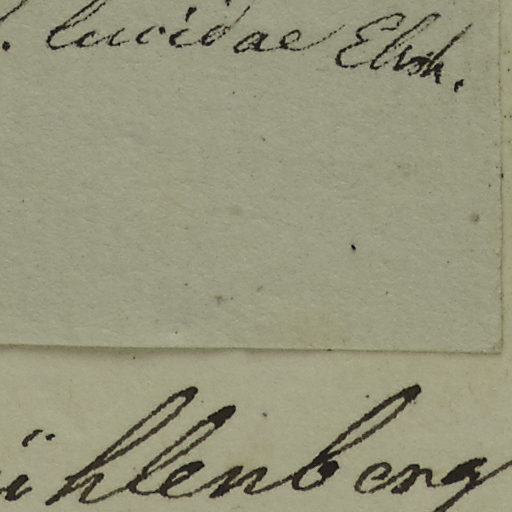 . lucidae Ehrh.
ühlenberg